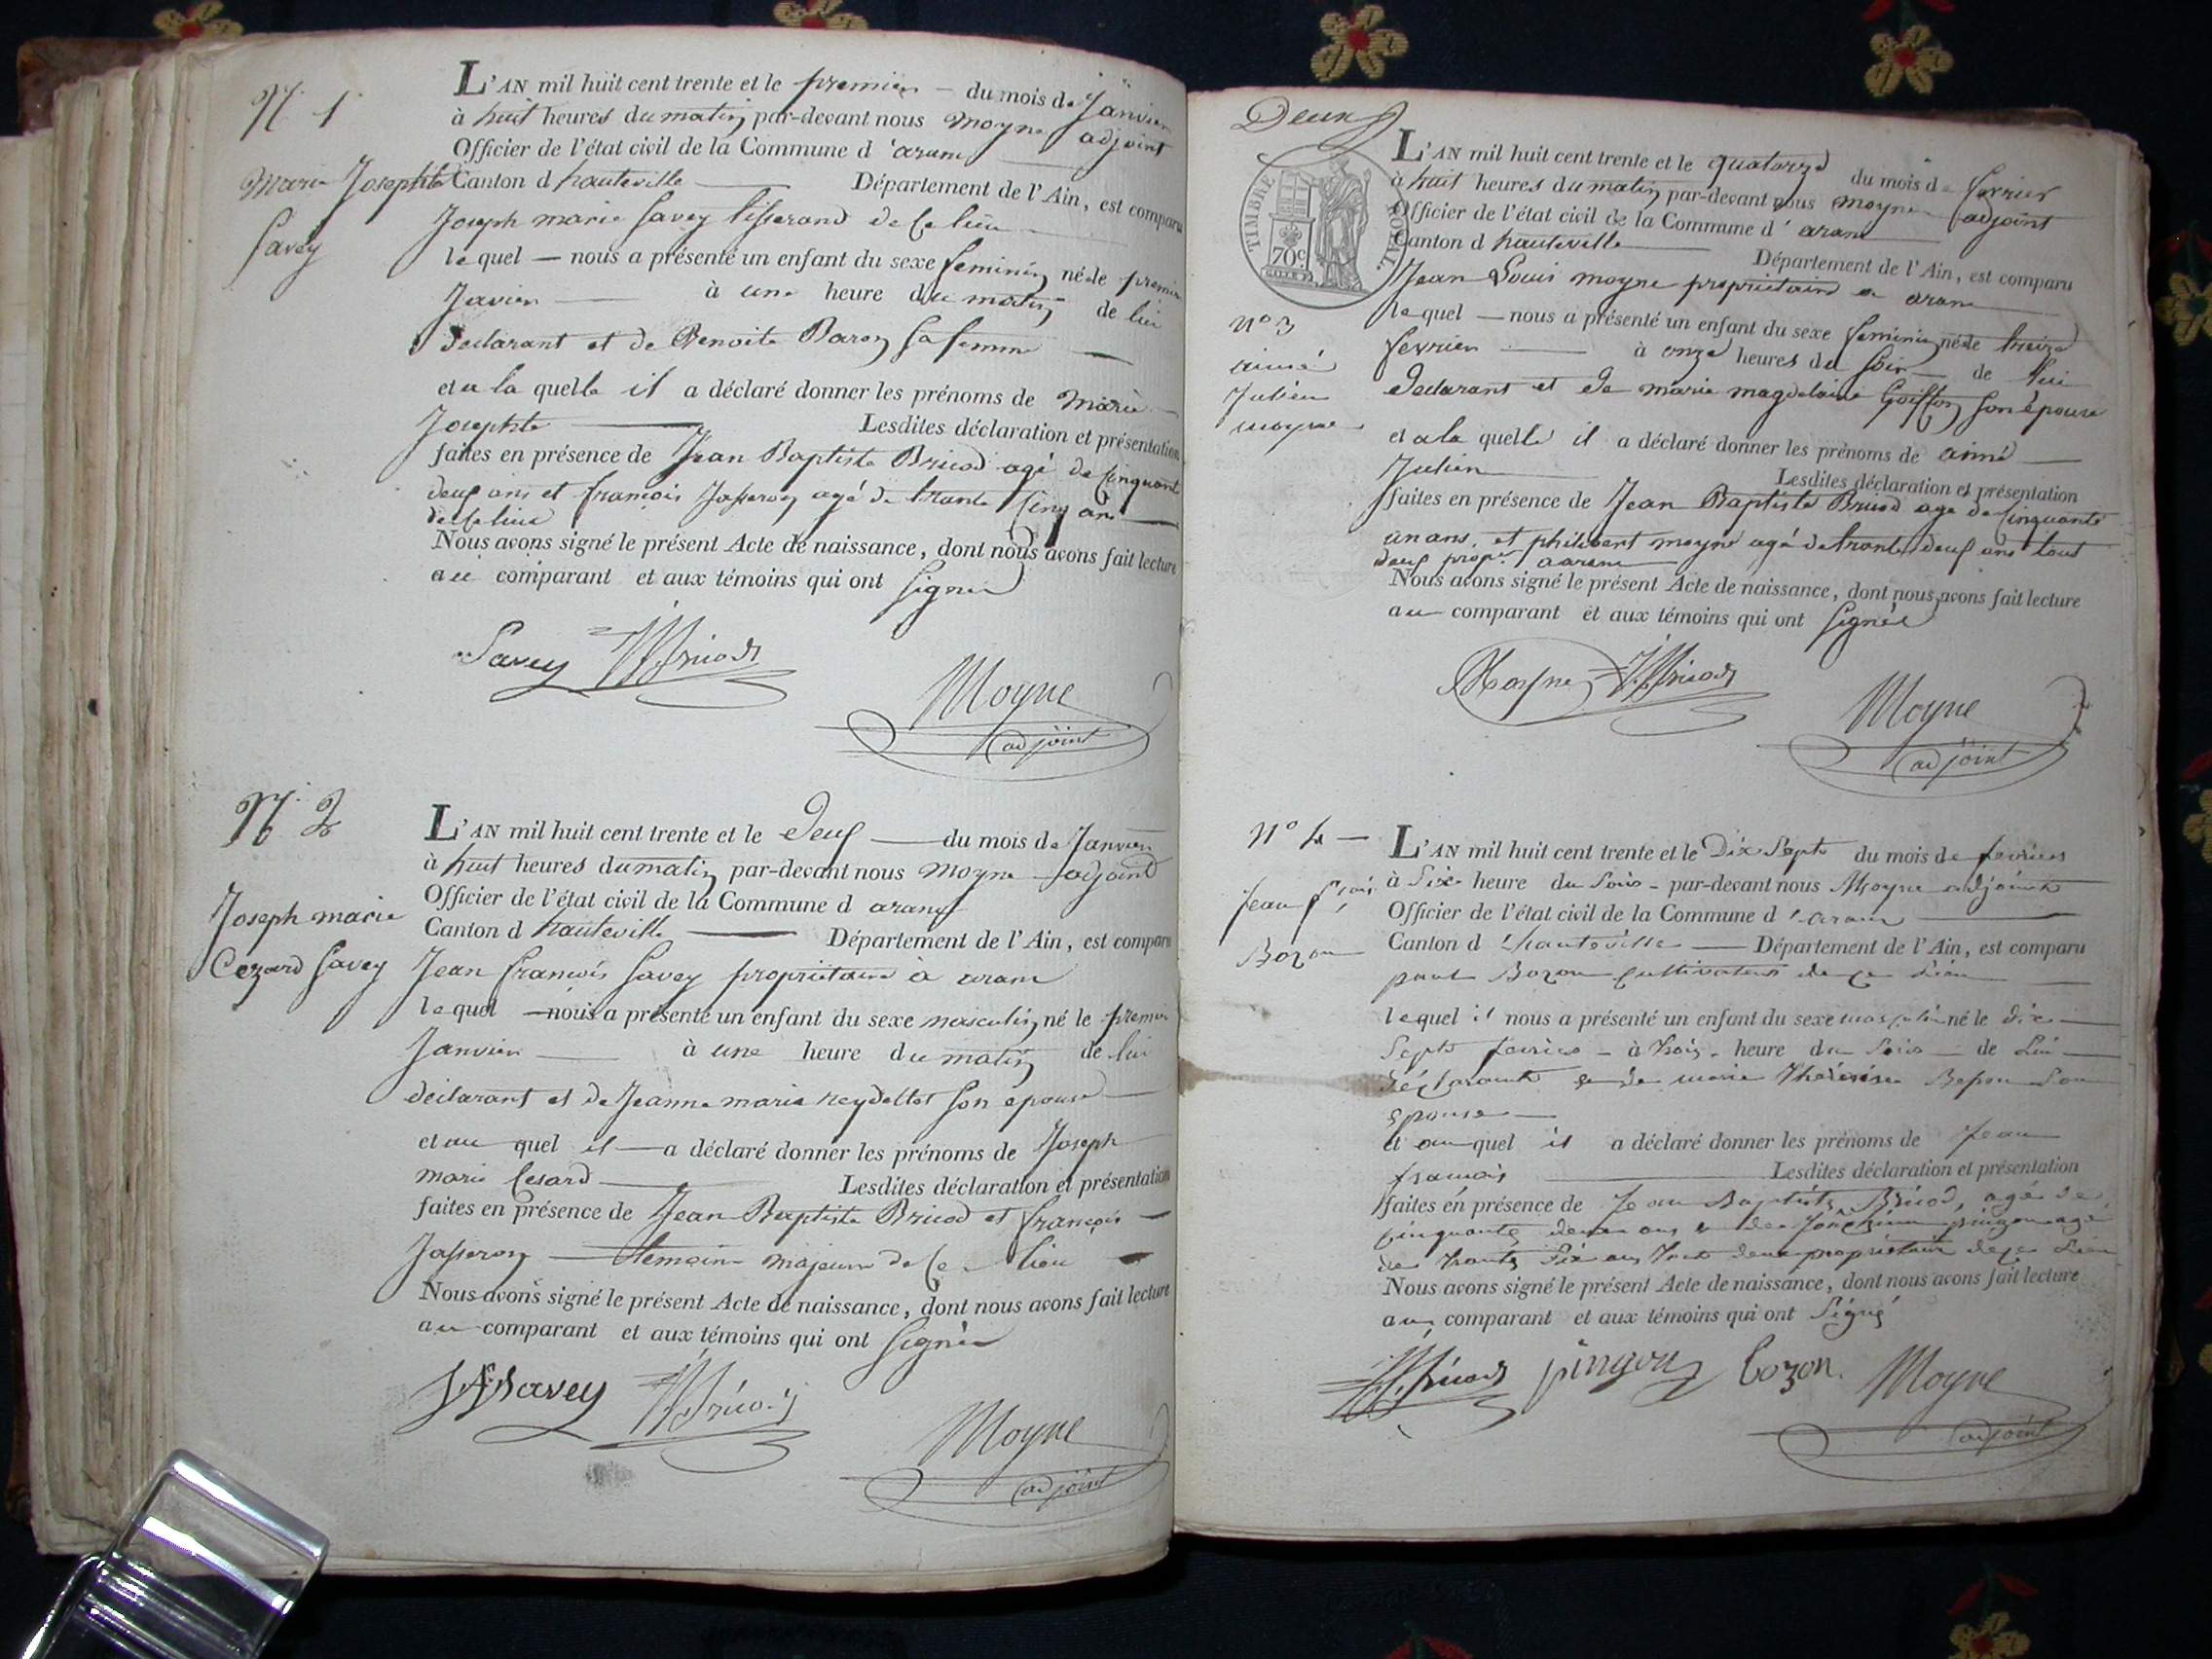 N.° 1
Marie Josephte
Savey
L'AN mil huit cent trente et le premier du mois de Janvier
à huit heures du matin par-devant nous Moyne adjoint
Officier de l'état civil de la Commune d'aranc
Canton d hauteville Département de l'Ain, est comparu
Joseph marie Savey tisserand de ce lieu
lequel nous a présenté un enfant du sexe feminin né le premier
Javier à une heure du matin de lui
declarant et de Benoite Baron sa femme
et a la quelle il a déclaré donner les prénoms de Marie
Josephte Lesdites déclaration et présentation
faites en présence de Jean Baptiste Bricod agé de cinquante
deux ans et françois Jasseron agé de trante cinq ans
de ce lieu
Nous avons signé le présent Acte de naissance, dont nous avons fait lecture
au comparant et aux témoins qui ont signé
Savey JBricod
Moyne
adjoint
N.° 2
Joseph marie
Cezard Savey
L'AN mil huit cent trente et le deux du mois de Janvier
à huit heures du matin par-devant nous Moyne adjoint
Officier de l'état civil de la Commune d aranc
Canton d hauteville Département de l'Ain, est comparu
Jean francois Savey propriétaire à aranc
lequel nous a présenté un enfant du sexe masculin né le premier
Janvier à une heure du matin de lui
déclarant et de Jeanne marie reydellet son epouse
et au quel il a déclaré donner les prénoms de Joseph
marie Cesard Lesdites déclaration et présentation
faites en présence de Jean Baptiste Bricod et françois
Jasseron temoins majeurs de ce lieu
Nous avons signé le présent Acte de naissance, dont nous avons fait lecture
au comparant et aux témoins qui ont signé
JFSavey JBricod
Moyne
adjoint
Deux
TIMBRE ROYAL.
70c
N° 3
aimé
Julien
moyne
L'AN mil huit cent trente et le quatorze du mois de fevrier
à huit heures du matin par-devant nous moyne adjoint
Officier de l'état civil de la Commune d'aranc
Canton d hauteville Département de l'Ain, est comparu
Jean Louis moyne propriétaire a aranc
lequel nous a présenté un enfant du sexe feminin né le treize
fevrier à onze heures du soir de lui
declarant et de marie magdelaine Goiffon son épouse
et a la quelle il a déclaré donner les prénoms de aimé
Julien Lesdites déclaration et présentation
faites en présence de Jean Baptiste Bricod age de cinquante
un ans, et philibert moyne agé de trante deux ans tout
deux prop.re a aranc
Nous avons signé le présent Acte de naissance, dont nous avons fait lecture
au comparant et aux témoins qui ont signés
Moyne JBricod
Moyne
adjoint
N° 4
Jean f.çois
Bozon
L'AN mil huit cent trente et le Dix Sept du mois de fevrier
à Six heure du Soir par-devant nous Moyne adjoint
Officier de l'état civil de la Commune d'aranc
Canton d'hauteville Département de l'Ain, est comparu
paul Bozon cultivateur de ce Lieu
lequel il nous a présenté un enfant du sexe masculin né le dix
Sept fevrier à trois heure du Soir de Lui
déclarant e de marie Thérésise Son
epouse
et au quel il a déclaré donner les prénoms de Jean
francois Lesdites déclaration et présentation
faites en présence de Jean Baptiste Bricod, agé de
cinquante deux ans e de Joachim pingon agé
de trante Six ans tout deux propriétaire de ce Lieu
Nous avons signé le présent Acte de naissance, dont nous avons fait lecture
aux comparant et aux témoins qui ont Signé
JBricod pingon bozon. Moyne
adjoint